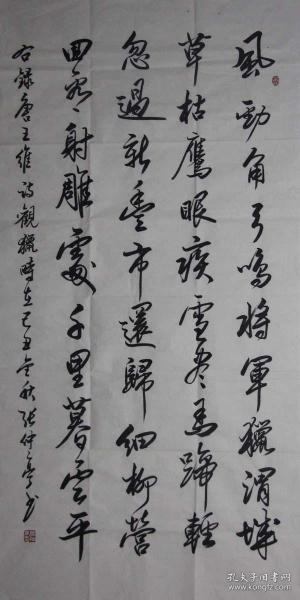 風勁角弓鳴将軍獵渭城
草枯鷹眼疾雪尽馬蹄輕
忽過新豊市還歸細柳營
回看射雕處千里暮雲平
右録唐王維詩觀獵時在己丑金秋張仲亭書
孔夫子旧书网